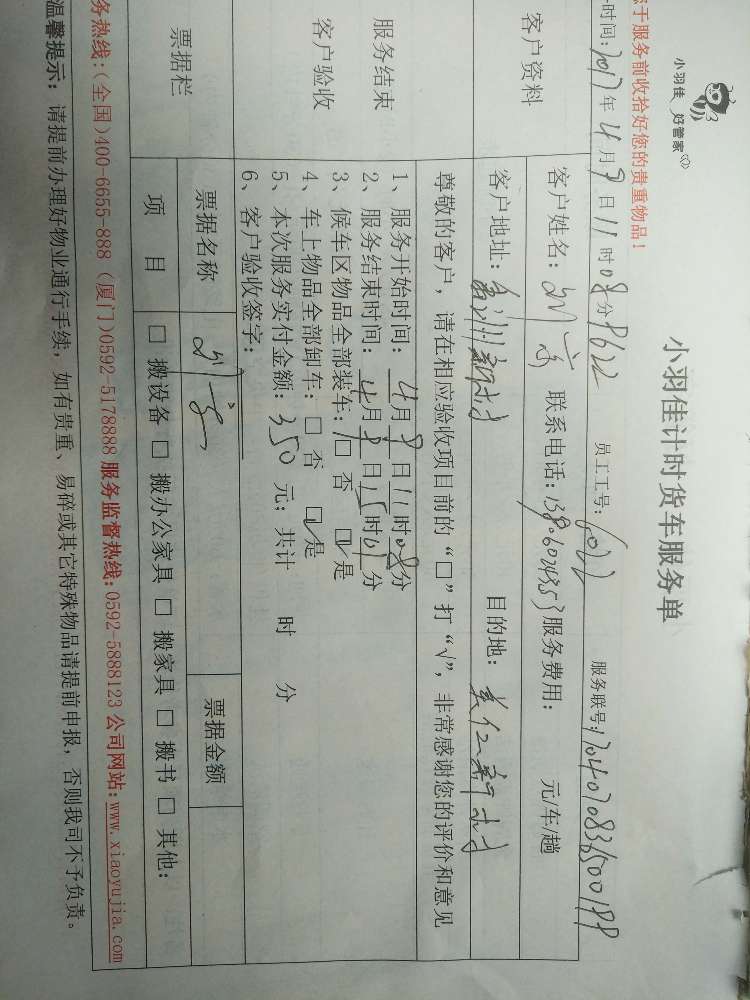 小羽佳 好管家
小羽佳计时货车服务单
于服务前收拾好您的贵重物品!
时间: 2017年4月9日11时08分 员工工号: 服务联号: 170407083650018
客户资料
客户姓名: 联系电话: 服务费用: 元/车/趟
客户地址: 目的地:
尊敬的客户,请在相应验收项目前的“□”打“√”,非常感谢您的评价和意见
服务结束
客户验收
1、服务开始时间: 4月9日11时08分
2、服务结束时间: 4月9日15时01分
3、候车区物品全部装车: □ 否 ☑ 是
4、车上物品全部卸车: □ 否 ☑ 是
5、本次服务实付金额: 350 元; 共计 时 分
6、客户验收签字:
票据栏
票据名称 票据金额
项 目 □ 搬设备 □ 搬办公家具 □ 搬家具 □ 搬书 □ 其他:
务热线:(全国)400-6655-888 (厦门)0592-5178888 服务监督热线:0592-5888123 公司网站:www.xiaoyujia.com
温馨提示: 请提前办理好物业通行手续,如有贵重、易碎或其它特殊物品请提前申报,否则我司不予负责。